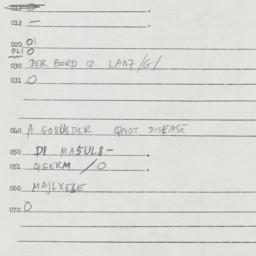 012 —
020 0
021 0
030 DER BORD IZ LANZ/G/
031 0
040 A GOBLIDER QNOT DISEASE
050 DI MASUL8-
051 QGERM /0
060 MAJLXELE
070 0